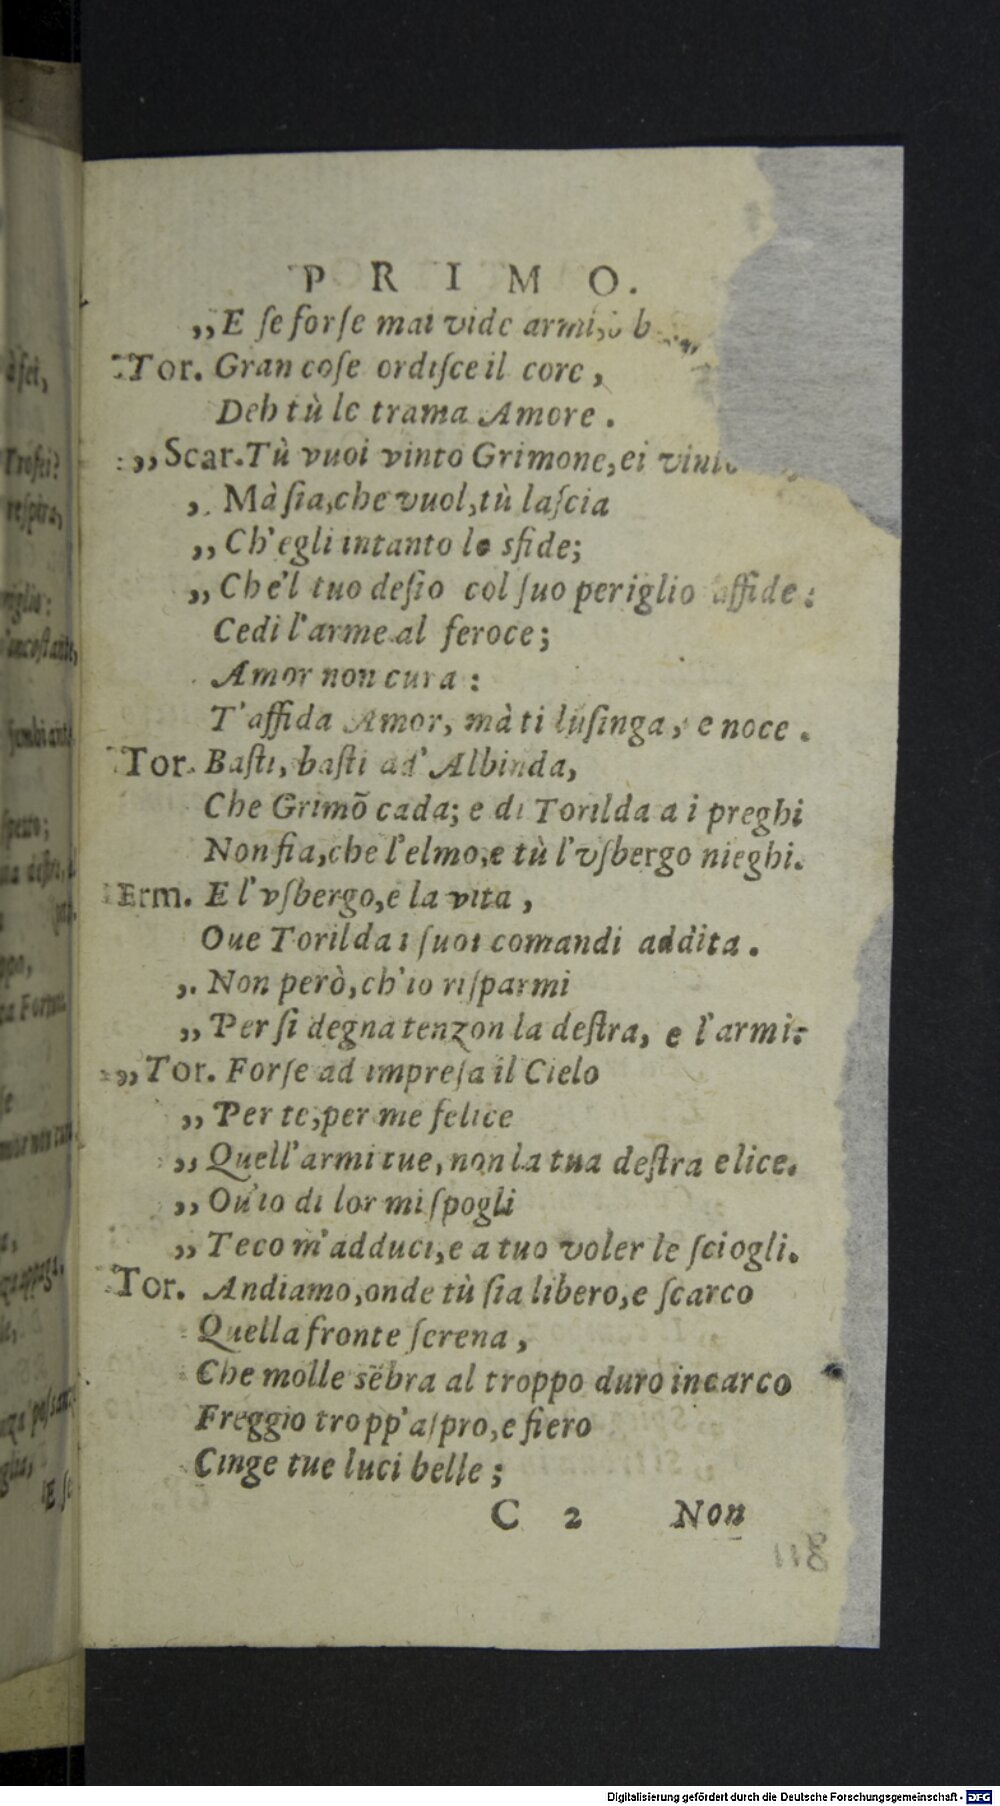 PRIMO.
„E ſe forſe mai vide armi, ò
Tor. Gran coſe ordiſce il core,
Deh tù le trama Amore.
„Scar. Tù vuoi vinto Grimone, ei
„ Mà ſia, che vuol, tù laſcia
„ Ch'egli intanto lo sfide;
„ Che'l tuo deſio col ſuo periglio affide:
Cedi l'arme al feroce;
Amor non cura:
T'affida Amor, mà ti luſinga, e noce.
Tor. Baſti, baſti ad' Albinda,
Che Grimõ cada; e di Torilda a i preghi
Non fia, che l'elmo, e tù l'vſbergo nieghi.
Erm. E l'vſbergo, e la vita,
Oue Torilda i ſuoi comandi addita.
„ Non però, ch'io riſparmi
„ Per ſi degna tenzon la deſtra, e l'armi:
„Tor. Forſe ad impreſa il Cielo
„ Per te, per me felice
„ Quell'armi tue, non la tua deſtra elice.
„ Ou'io di lor mi ſpogli
„ Teco m'adduci, e a tuo voler le ſciogli.
Tor. Andiamo, onde tù ſia libero, e ſcarco
Quella fronte ſerena,
Che molle sẽbra al troppo duro incarco
Freggio tropp'aſpro, e fiero
Cinge tue luci belle;
C 2 Non
118
Digitalisierung gefördert durch die Deutsche Forschungsgemeinschaft - DFG